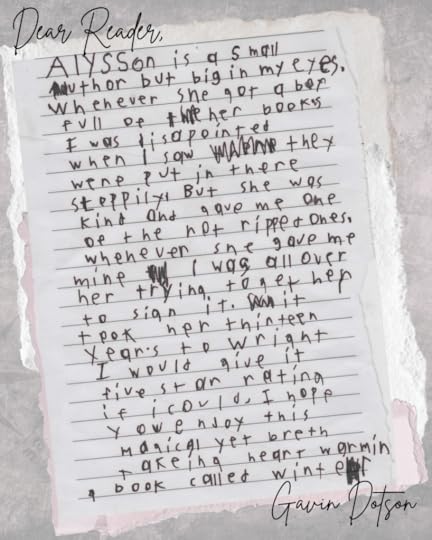 Dear Reader,
Alysson is a small
author but big in my eyes.
Whenever she got a box
full of her books
I was disapointed
when I saw they
were put in there
sloppily. But she was
kind and gave me one
of the not ripped ones.
whenever she gave me
mine I was all over
her trying to get her
to sign it. it
took her thirteen
years to wright
I would give it
five star rating
if i could. I hope
yow enjoy this
magical yet breth
takeing heart warmin
book called winter
Gavin Dotson